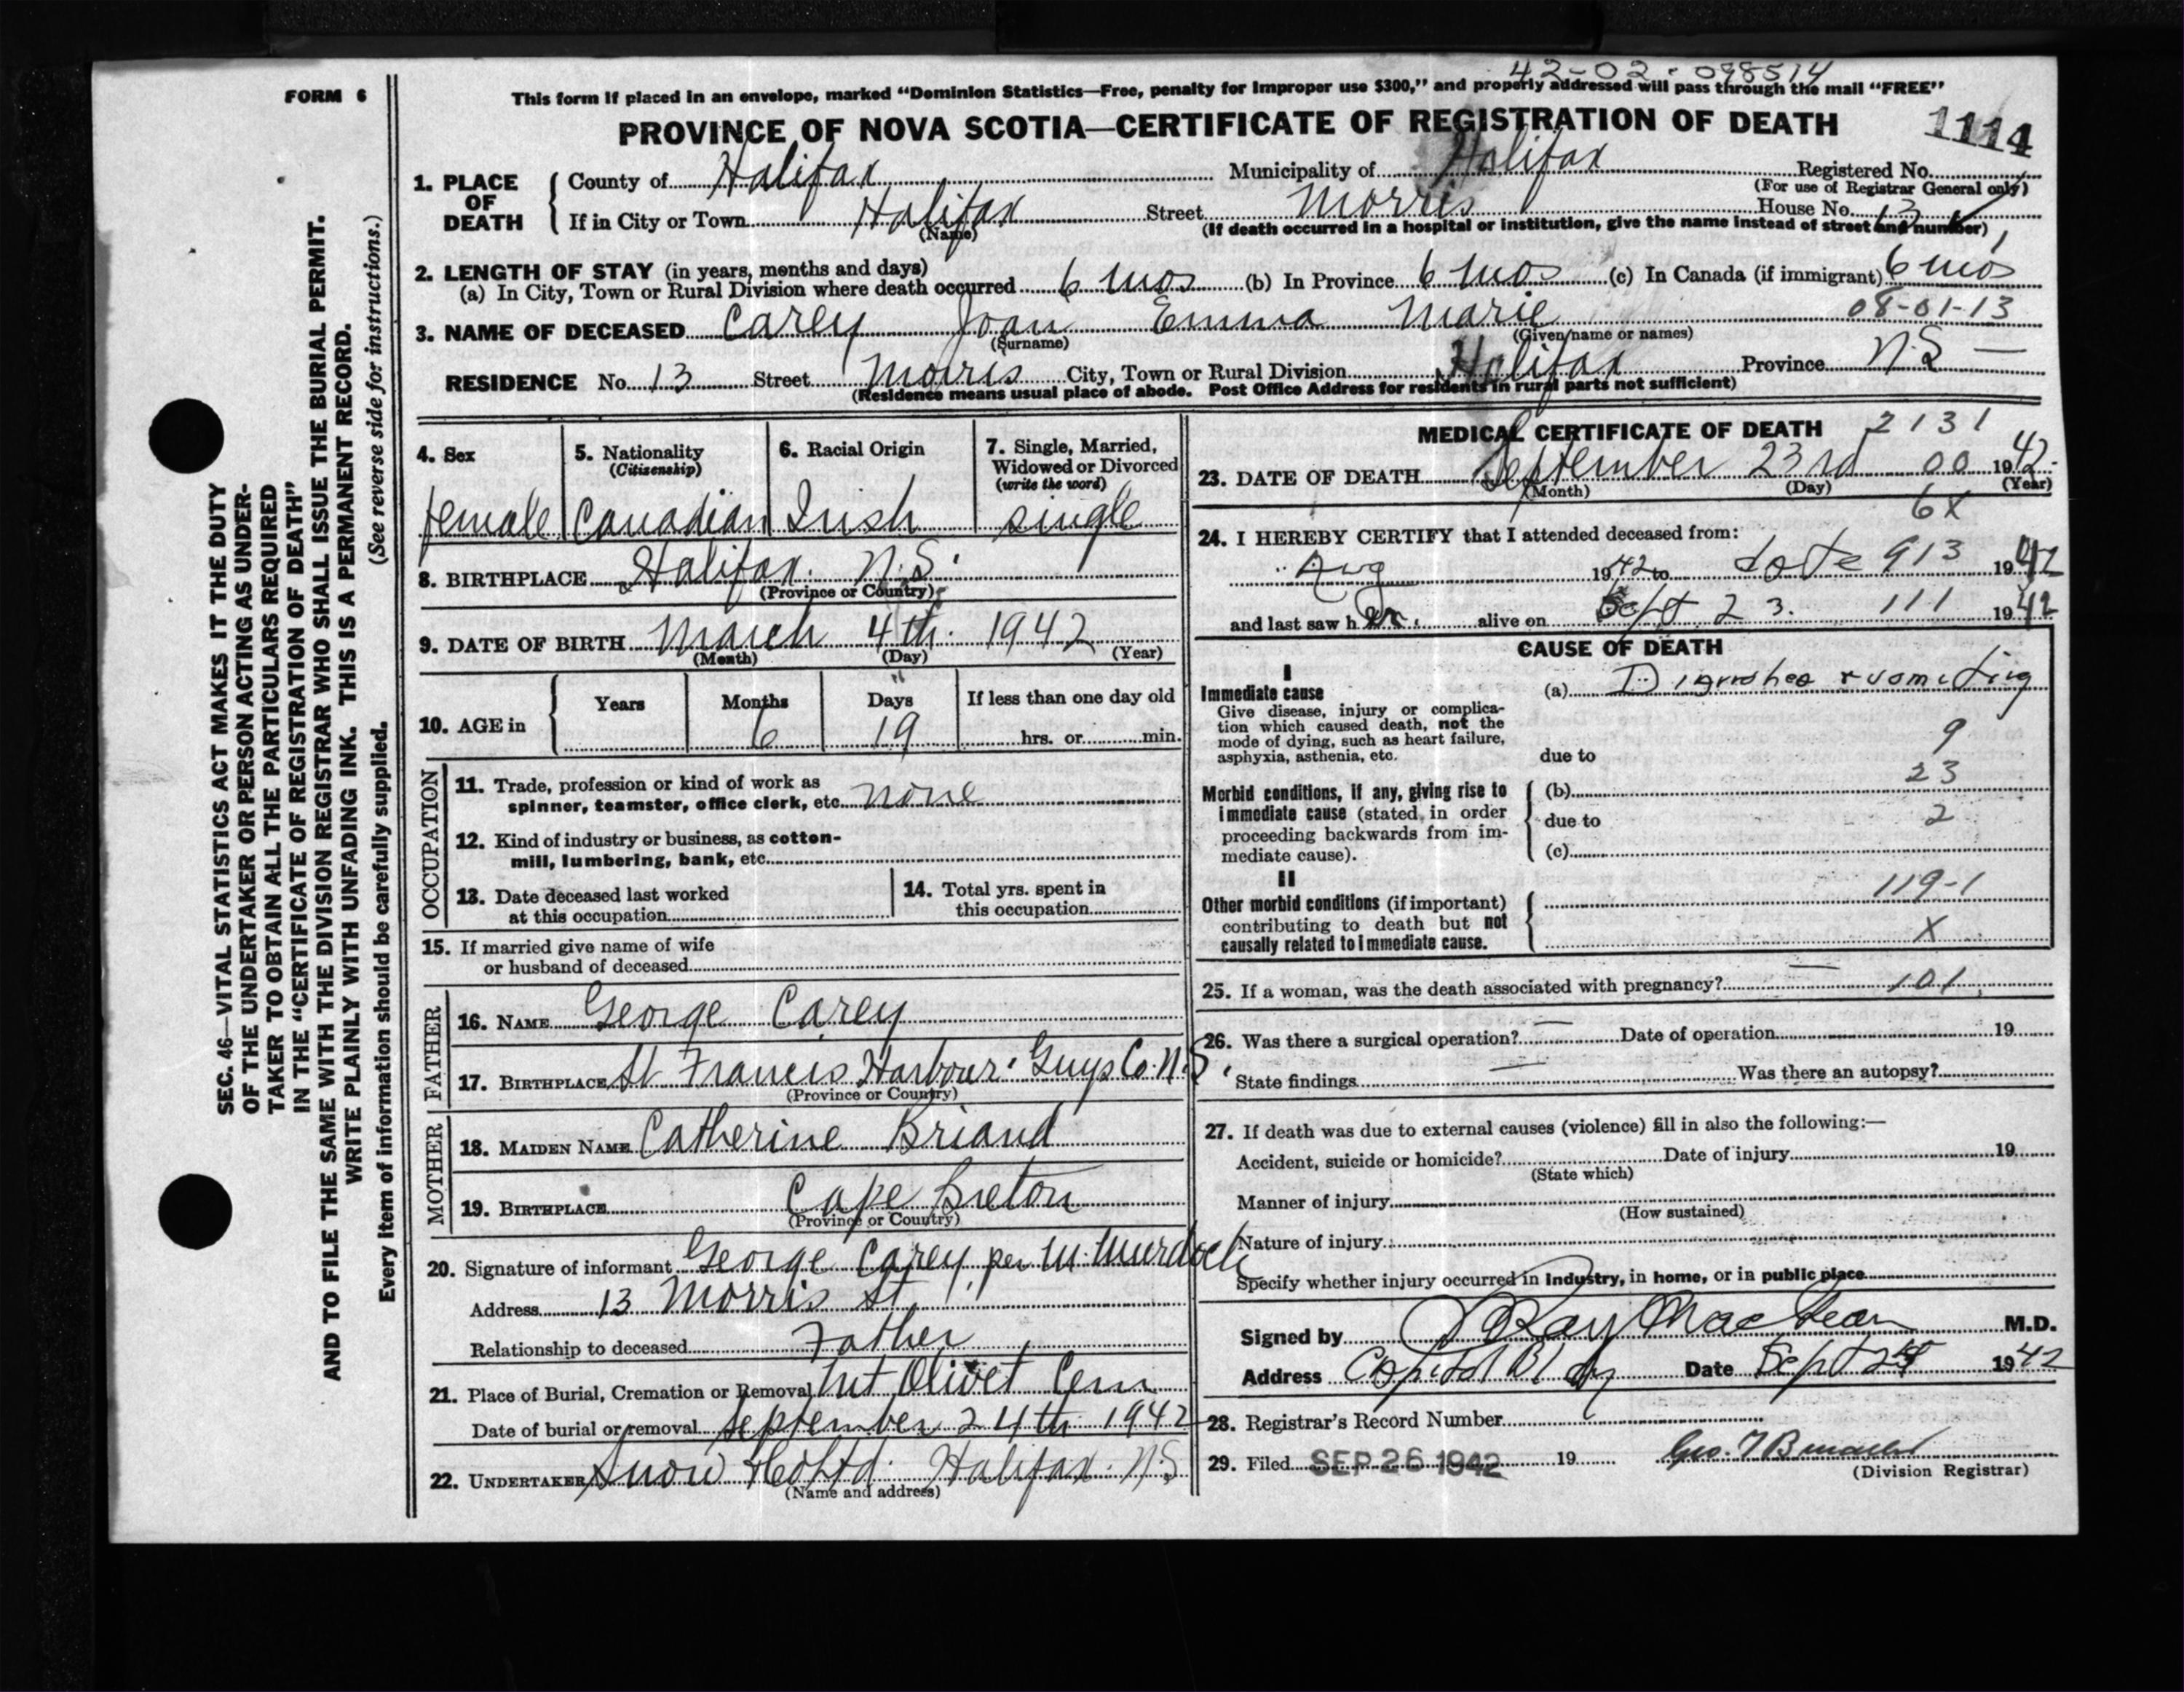 42-02-098514
FORM 6
This form if placed in an envelope, marked "Dominion Statistics—Free, penalty for improper use $300," and properly addressed will pass through the mail "FREE"
PROVINCE OF NOVA SCOTIA—CERTIFICATE OF REGISTRATION OF DEATH
1114
1. PLACE OF DEATH
County of Halifax Municipality of Halifax Registered No.
(For use of Registrar General only)
If in City or Town Halifax Street Morris House No. 13
(Name) (If death occurred in a hospital or institution, give the name instead of street and number)
2. LENGTH OF STAY (in years, months and days)
(a) In City, Town or Rural Division where death occurred 6 mos (b) In Province 6 mos (c) In Canada (if immigrant) 6 mos
08-01-13
3. NAME OF DECEASED Carey Joan Emma Marie
(Surname) (Given name or names)
RESIDENCE No. 13 Street Morris City, Town or Rural Division Halifax Province N.S —
(Residence means usual place of abode. Post Office Address for residents in rural parts not sufficient)
4. Sex
female
5. Nationality
(Citizenship)
Canadian
6. Racial Origin
Irish
7. Single, Married,
Widowed or Divorced
(write the word)
single
8. BIRTHPLACE Halifax. N.S.
(Province or Country)
9. DATE OF BIRTH March 4th. 1942
(Month) (Day) (Year)
10. AGE in
Years Months Days If less than one day old
6 19 hrs. or min.
OCCUPATION
11. Trade, profession or kind of work as
spinner, teamster, office clerk, etc. none
12. Kind of industry or business, as cotton-
mill, lumbering, bank, etc.
13. Date deceased last worked
at this occupation
14. Total yrs. spent in
this occupation
15. If married give name of wife
or husband of deceased
FATHER
16. NAME George Carey
17. BIRTHPLACE St Francis Harbour. Guys Co. N.S.
(Province or Country)
MOTHER
18. MAIDEN NAME Catherine Briand
19. BIRTHPLACE Cape Breton
(Province or Country)
20. Signature of informant George Carey, per M. Murdoch
Address 13 Morris St
Relationship to deceased Father
21. Place of Burial, Cremation or Removal Mt Olivet Cem
Date of burial or removal September 24th. 1942
22. UNDERTAKER Snow & Co Ltd. Halifax. N.S
(Name and address)
MEDICAL CERTIFICATE OF DEATH 2131
23. DATE OF DEATH September 23rd 00 1942
(Month) (Day) (Year)
6X
24. I HEREBY CERTIFY that I attended deceased from:
Aug 1942 to date 913 1942
and last saw her alive on Sept 23. 111 1942
CAUSE OF DEATH
I
Immediate cause
Give disease, injury or complica-
tion which caused death, not the
mode of dying, such as heart failure,
asphyxia, asthenia, etc.
(a) Diarrohea & vomiting
9
due to
23
Morbid conditions, if any, giving rise to
immediate cause (stated in order
proceeding backwards from im-
mediate cause).
(b)
due to 2
(c)
II
Other morbid conditions (if important)
contributing to death but not
causally related to immediate cause.
119-1
X
25. If a woman, was the death associated with pregnancy? — 101
26. Was there a surgical operation? — Date of operation 19
State findings — Was there an autopsy?
27. If death was due to external causes (violence) fill in also the following:—
Accident, suicide or homicide? Date of injury 19
(State which)
Manner of injury
(How sustained)
Nature of injury
Specify whether injury occurred in industry, in home, or in public place
Signed by Ray MacLean M.D.
Address Capitol Bldg Date Sept 24 1942
28. Registrar's Record Number
29. Filed SEP 26 1942 19 Geo.
(Division Registrar)
SEC. 46—VITAL STATISTICS ACT MAKES IT THE DUTY
OF THE UNDERTAKER OR PERSON ACTING AS UNDER-
TAKER TO OBTAIN ALL THE PARTICULARS REQUIRED
IN THE "CERTIFICATE OF REGISTRATION OF DEATH"
AND TO FILE THE SAME WITH THE DIVISION REGISTRAR WHO SHALL ISSUE THE BURIAL PERMIT.
WRITE PLAINLY WITH UNFADING INK. THIS IS A PERMANENT RECORD.
(See reverse side for instructions.)
Every item of information should be carefully supplied.